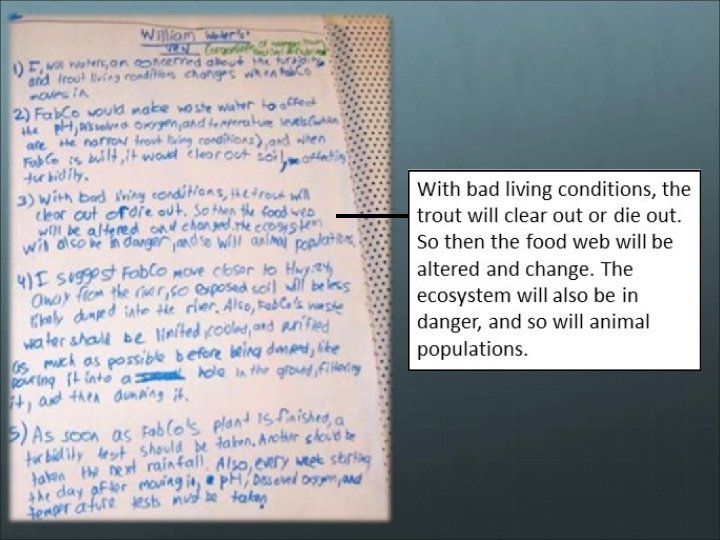 William Water's
1) I, Will Waters, am concerned about the turbidity
and trout living conditions changes when FabCo
moves in.
2) FabCo would make waste water to affect
the pH, Dissolved oxygen, and temperature levels (which
are the narrow trout living conditions), and when
FabCo is built, it would clear out soil, affecting
turbidity.
3) With bad living conditions, the trout will
clear out or die out. So then the food web
will be altered and changed. The ecosystem
will also be in danger, and so will animal populations.
4) I suggest FabCo move closer to Hwy. 24,
away from the river, so exposed soil will be less
likely dumped into the river. Also, FabCo's waste
water should be limited, cooled, and purified
as much as possible before being dumped, like
pouring it into a hole in the ground, filtering
it, and then dumping it.
5) As soon as FabCo's plant is finished, a
turbidity test should be taken. Another should be
taken the next rainfall. Also, every week starting
the day after moving in, pH, Dissolved oxygen, and
temperature tests must be taken.
With bad living conditions, the
trout will clear out or die out.
So then the food web will be
altered and change. The
ecosystem will also be in
danger, and so will animal
populations.